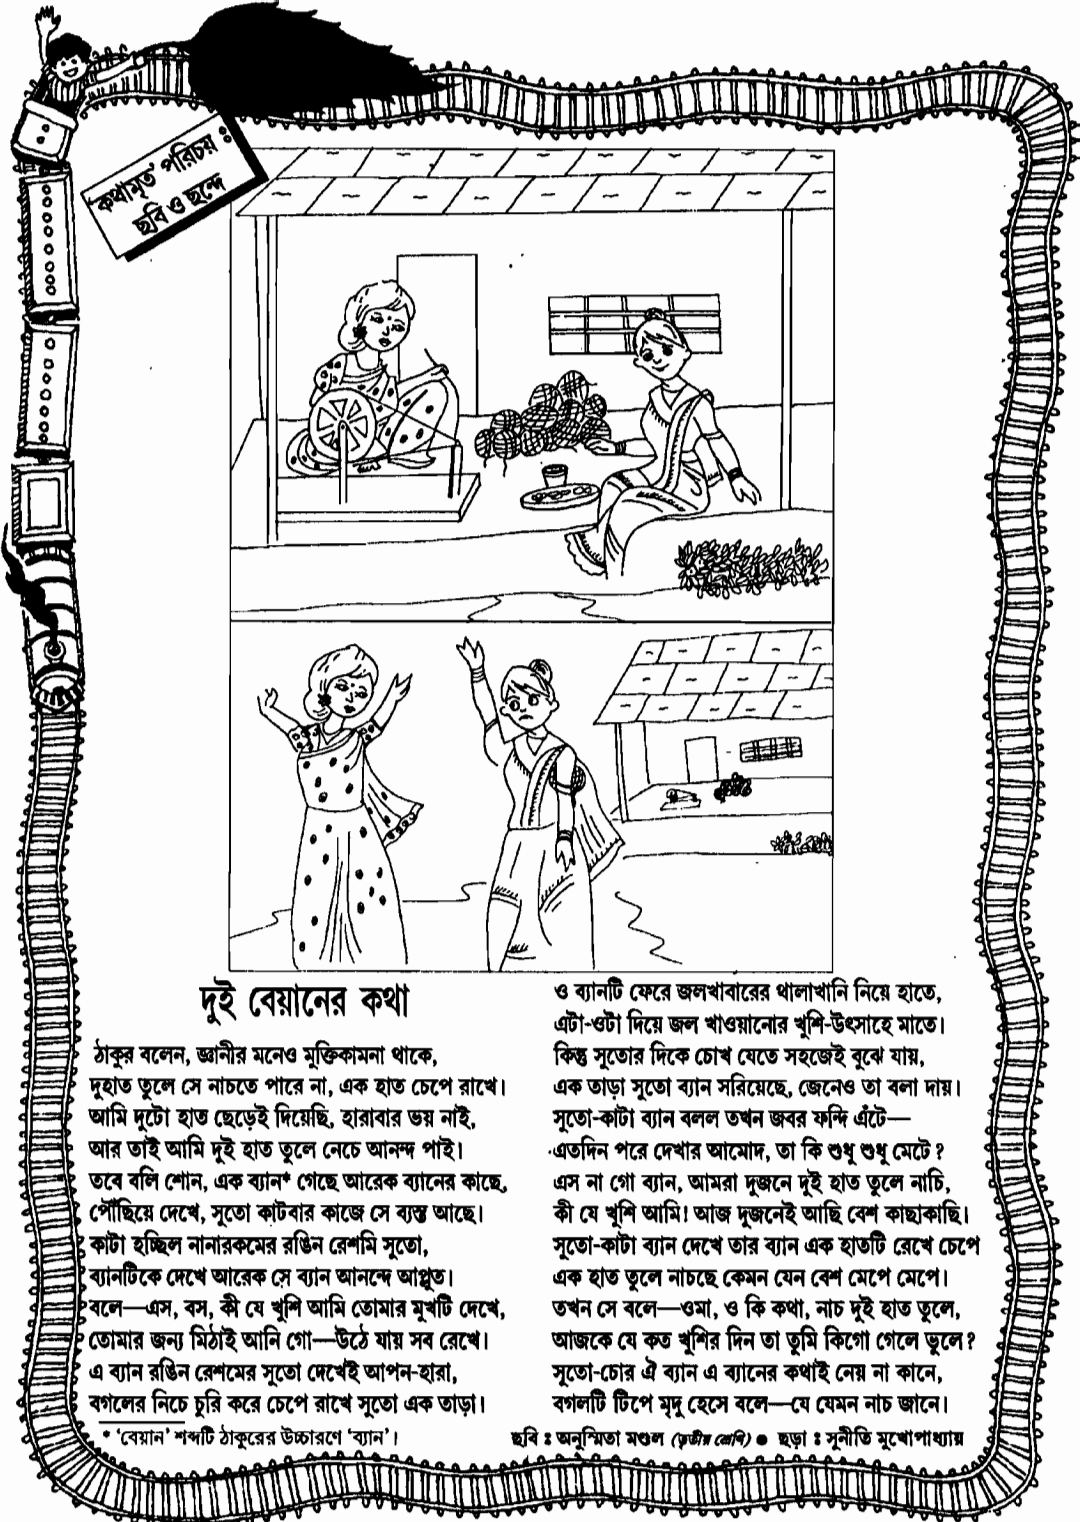 'কথামৃত' পরিচয় :
ছবি ও ছন্দে
দুই বেয়ানের কথা
ঠাকুর বলেন, জ্ঞানীর মনেও মুক্তিকামনা থাকে,
দুহাত তুলে সে নাচতে পারে না, এক হাত চেপে রাখে।
আমি দুটো হাত ছেড়েই দিয়েছি, হারাবার ভয় নাই,
আর তাই আমি দুই হাত তুলে নেচে আনন্দ পাই।
তবে বলি শোন, এক ব্যান* গেছে আরেক ব্যানের কাছে,
পৌঁছিয়ে দেখে, সুতো কাটবার কাজে সে ব্যস্ত আছে।
কাটা হচ্ছিল নানারকমের রঙিন রেশমি সুতো,
ব্যানটিকে দেখে আরেক সে ব্যান আনন্দে আপ্লুত।
বলে—এস, বস, কী যে খুশি আমি তোমার মুখটি দেখে,
তোমার জন্য মিঠাই আনি গো—উঠে যায় সব রেখে।
এ ব্যান রঙিন রেশমের সুতো দেখেই আপন-হারা,
বগলের নিচে চুরি করে চেপে রাখে সুতো এক তাড়া।
* 'বেয়ান' শব্দটি ঠাকুরের উচ্চারণে 'ব্যান'।
ও ব্যানটি ফেরে জলখাবারের থালাখানি নিয়ে হাতে,
এটা-ওটা দিয়ে জল খাওয়ানোর খুশি-উৎসাহে মাতে।
কিন্তু সুতোর দিকে চোখ যেতে সহজেই বুঝে যায়,
এক তাড়া সুতো ব্যান সরিয়েছে, জেনেও তা বলা দায়।
সুতো-কাটা ব্যান বলল তখন জবর ফন্দি এঁটে—
এতদিন পরে দেখার আমোদ, তা কি শুধু শুধু মেটে?
এস না গো ব্যান, আমরা দুজনে দুই হাত তুলে নাচি,
কী যে খুশি আমি! আজ দুজনেই আছি বেশ কাছাকাছি।
সুতো-কাটা ব্যান দেখে তার ব্যান এক হাতটি রেখে চেপে
এক হাত তুলে নাচছে কেমন যেন বেশ মেপে মেপে।
তখন সে বলে—ওমা, ও কি কথা, নাচ দুই হাত তুলে,
আজকে যে কত খুশির দিন তা তুমি কিগো গেলে ভুলে?
সুতো-চোর ঐ ব্যান এ ব্যানের কথাই নেয় না কানে,
বগলটি টিপে মৃদু হেসে বলে—যে যেমন নাচ জানে।
ছবি : অনুস্মিতা মণ্ডল (তৃতীয় শ্রেণি) ● ছড়া : সুনীতি মুখোপাধ্যায়